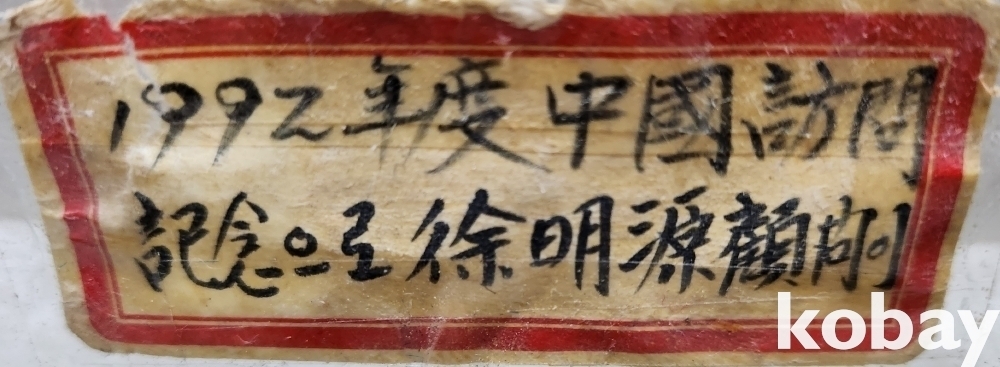 1992年度中國訪問
記念으로 徐明源顧問
kobay